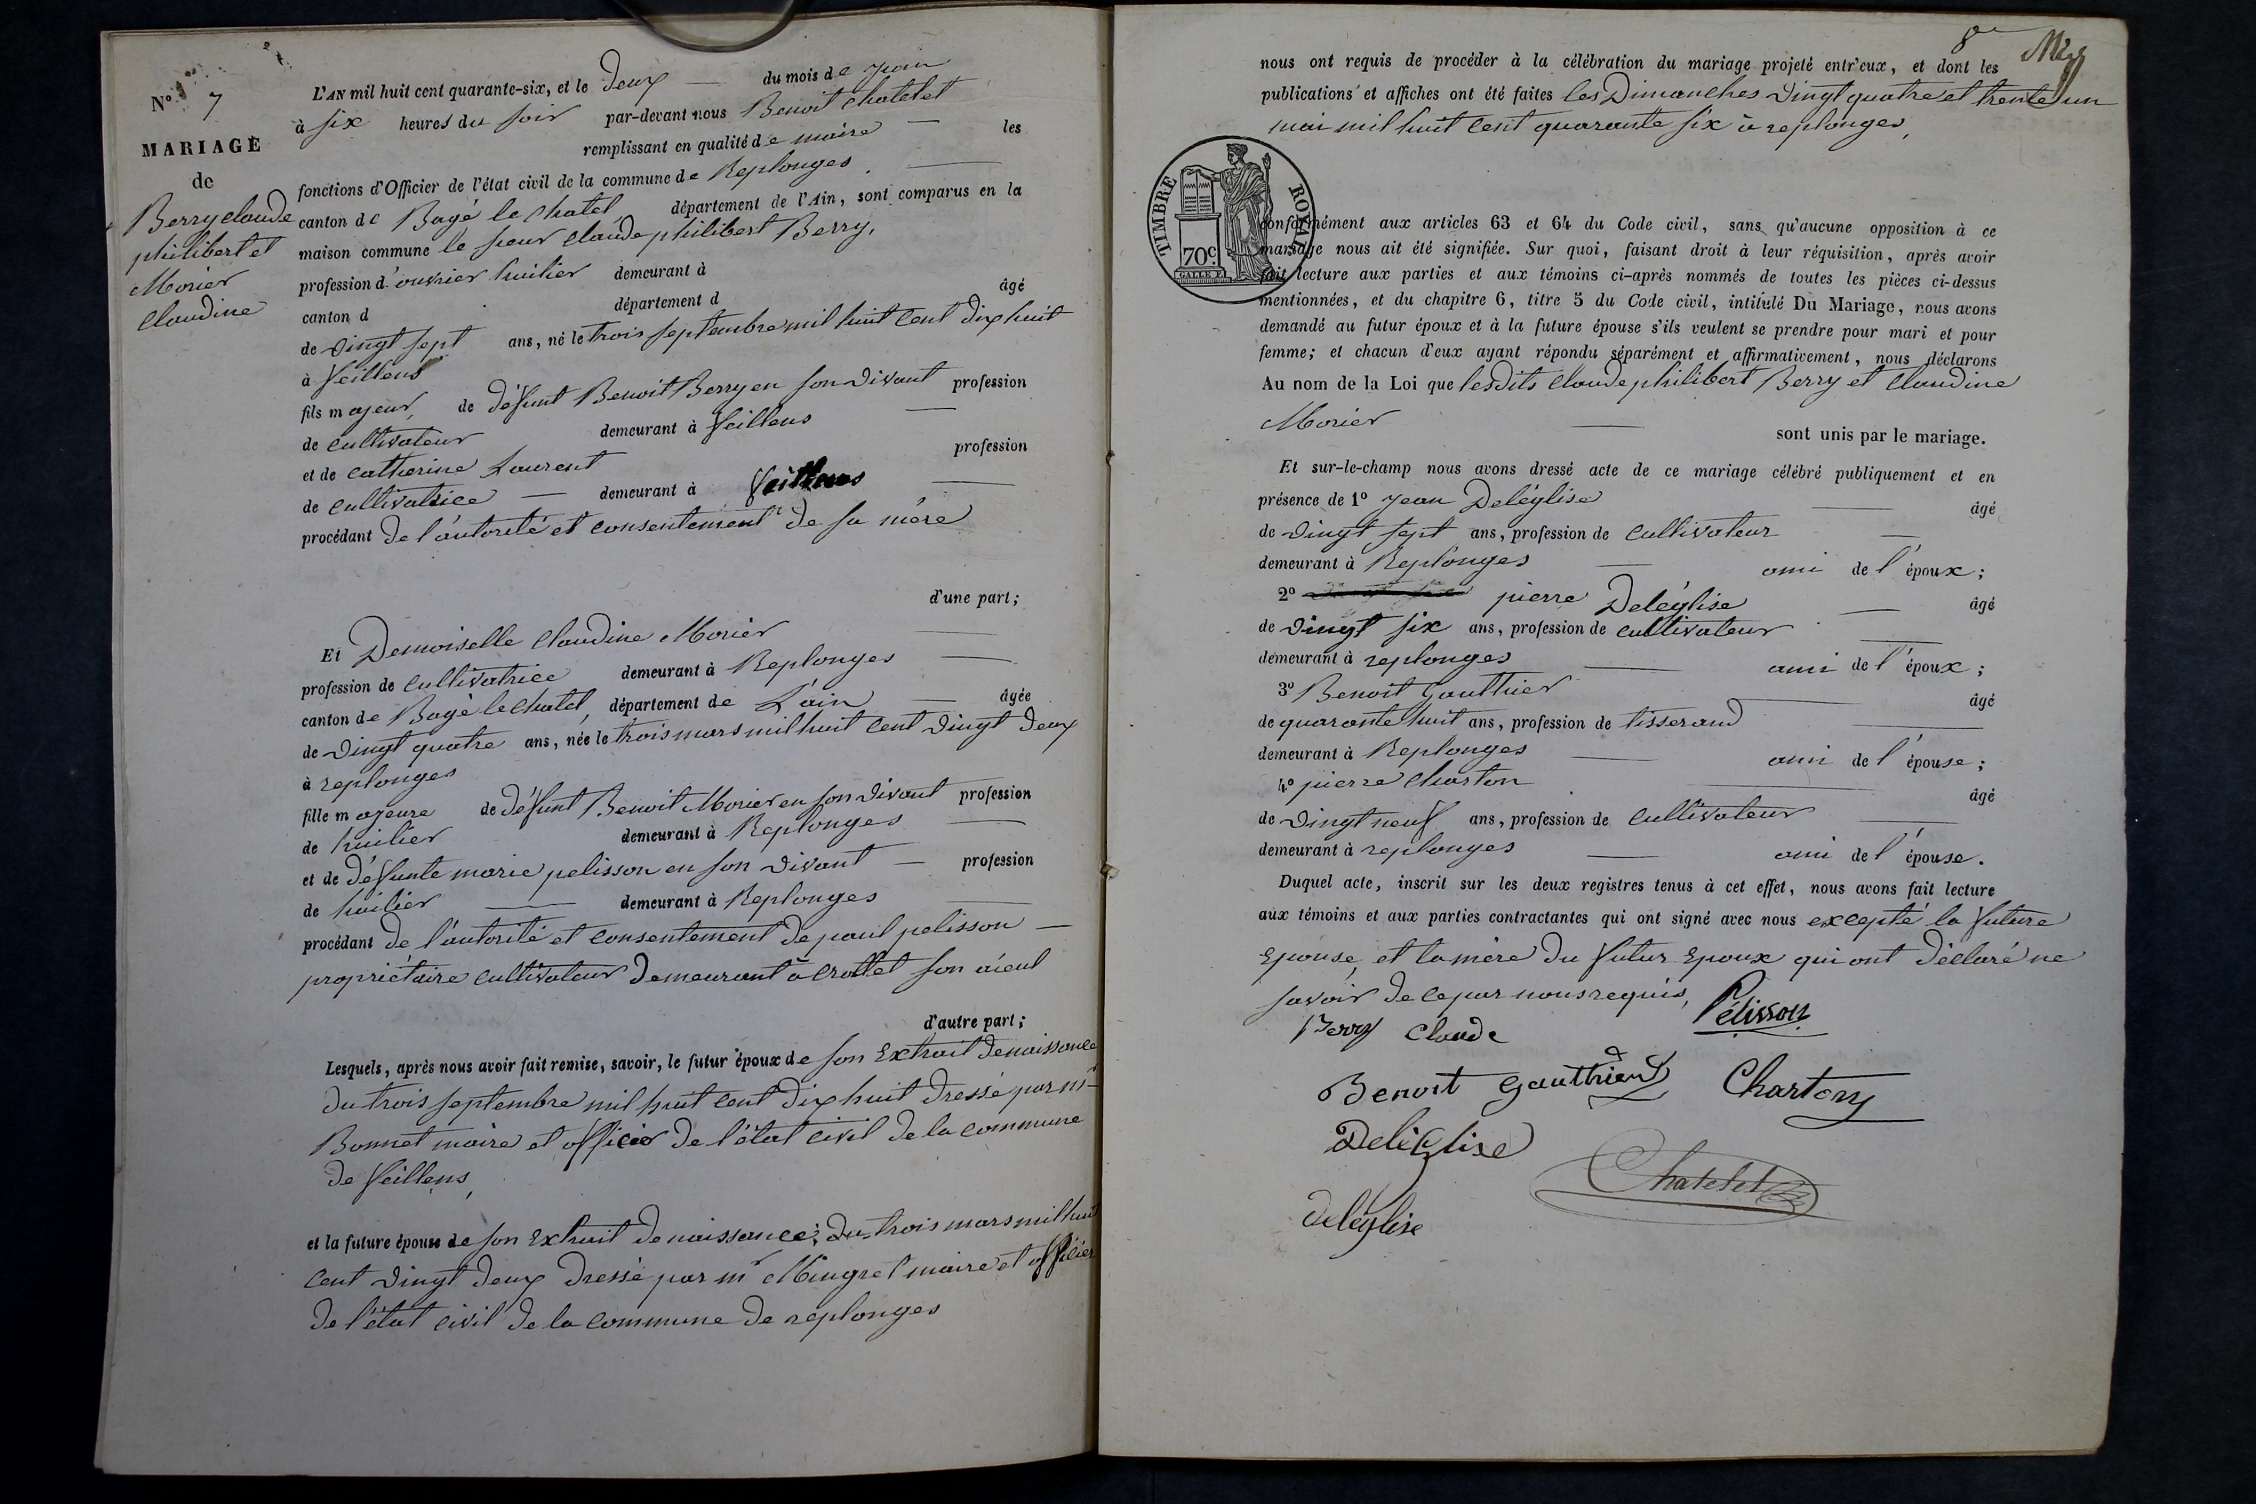 N.o 7
MARIAGE
de
Berry claude
philibert et
Morier
claudine
L'AN mil huit cent quarante-six, et le deux du mois de juin
à six heures du soir par-devant nous Benoit Chatelet
remplissant en qualité de maire les
fonctions d'Officier de l'état civil de la commune de Replonges
canton de Bagé le chatel département de l'Ain, sont comparus en la
maison commune le sieur claude philibert Berry,
profession d'ouvrier huilier demeurant à
canton d département d âgé
de vingt sept ans, né le trois septembre mil huit cent dix huit
à feillens
fils majeur, de défunt Benoit Berry en son vivant profession
de cultivateur demeurant à feillens
et de catherine Laurent profession
de cultivatrice demeurant à feillens
procédant de l'autorité et consentement de sa mère
d'une part;
Et Demoiselle claudine Morier
profession de cultivatrice demeurant à Replonges
canton de Bagé le chatel, département de L'ain âgée
de vingt quatre ans, née le trois mars mil huit cent vingt deux
à replonges
fille majeure de défunt Benoit Morier en son vivant profession
de huilier demeurant à Replonges
et de défunte marie pelisson en son vivant profession
de huilier demeurant à Replonges
procédant de l'autorité et consentement de paul pelisson
propriétaire cultivateur demeurant à crottet son aïeul
d'autre part;
Lesquels, après nous avoir fait remise, savoir, le futur époux de son Extrait de naissance
du trois septembre mil huit cent dix huit dressé par mr
Bonnet maire et officier de l'état civil de la commune
de feillens,
et la future épouse de son Extrait de naissance, du trois mars mil huit
cent vingt deux dressé par mr Mingret maire et officier
de l'état civil de la commune de replonges
8
nous ont requis de procéder à la célébration du mariage projeté entr'eux, et dont les
publications et affiches ont été faites les Dimanches vingt quatre et trente un
mai mil huit cent quarante six à replonges,
TIMBRE ROYAL
70c.
conformément aux articles 63 et 64 du Code civil, sans qu'aucune opposition à ce
mariage nous ait été signifiée. Sur quoi, faisant droit à leur réquisition, après avoir
fait lecture aux parties et aux témoins ci-après nommés de toutes les pièces ci-dessus
mentionnées, et du chapitre 6, titre 5 du Code civil, intitulé Du Mariage, nous avons
demandé au futur époux et à la future épouse s'ils veulent se prendre pour mari et pour
femme; et chacun d'eux ayant répondu séparément et affirmativement, nous déclarons
Au nom de la Loi que lesdits claude philibert Berry et claudine
Morier
sont unis par le mariage.
Et sur-le-champ nous avons dressé acte de ce mariage célébré publiquement et en
présence de 1o jean Deléglise âgé
de vingt sept ans, profession de cultivateur
demeurant à Replonges ami de l'époux;
2o pierre Deléglise âgé
de vingt six ans, profession de cultivateur
demeurant à replonges ami de l'époux;
3o Benoit Gauthier âgé
de quarante huit ans, profession de tisserand
demeurant à Replonges ami de l'épouse;
4o pierre charton âgé
de vingt neuf ans, profession de cultivateur
demeurant à replonges ami de l'épouse.
Duquel acte, inscrit sur les deux registres tenus à cet effet, nous avons fait lecture
aux témoins et aux parties contractantes qui ont signé avec nous excepté la future
Epouse, et la mère du futur Epoux qui ont déclaré ne
savoir de ce par nous requis,
Berry Claude Pélisson
Benoit Gauthier Charton
Deléglise
Chatelet
deléglise